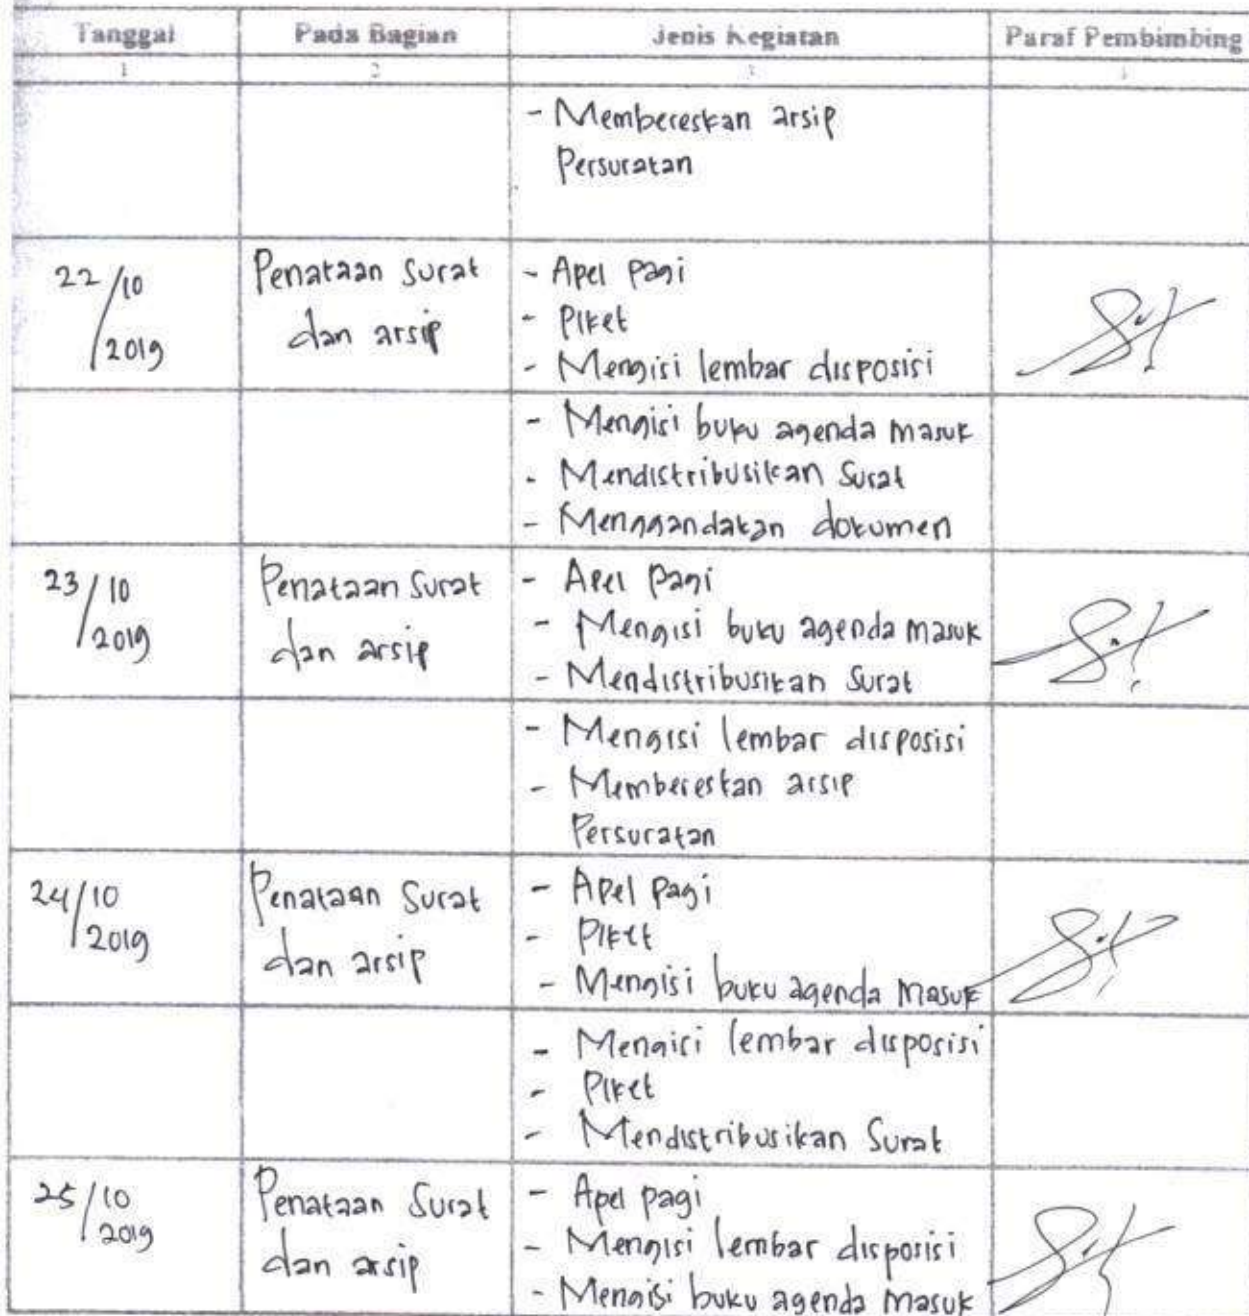 Tanggal Pada Bagian Jenis Kegiatan Paraf Pembimbing
1 2 3 4
- Membereskan arsip
Persuratan
22/10 Penataan Surat - Apel Pagi
2019 dan arsip - Piket
- Mengisi lembar disposisi
- Mengisi buku agenda masuk
- Mendistribusikan Surat
- Menggandakan dokumen
23/10 Penataan Surat - Apel Pagi
2019 dan arsip - Mengisi buku agenda masuk
- Mendistribusikan Surat
- Mengisi lembar disposisi
- Membereskan arsip
Persuratan
24/10 Penataan Surat - Apel pagi
2019 dan arsip - Piket
- Mengisi buku agenda Masuk
- Mengisi lembar disposisi
- Piket
- Mendistribusikan Surat
25/10 Penataan Surat - Apel pagi
2019 dan arsip - Mengisi lembar disposisi
- Mengisi buku agenda masuk